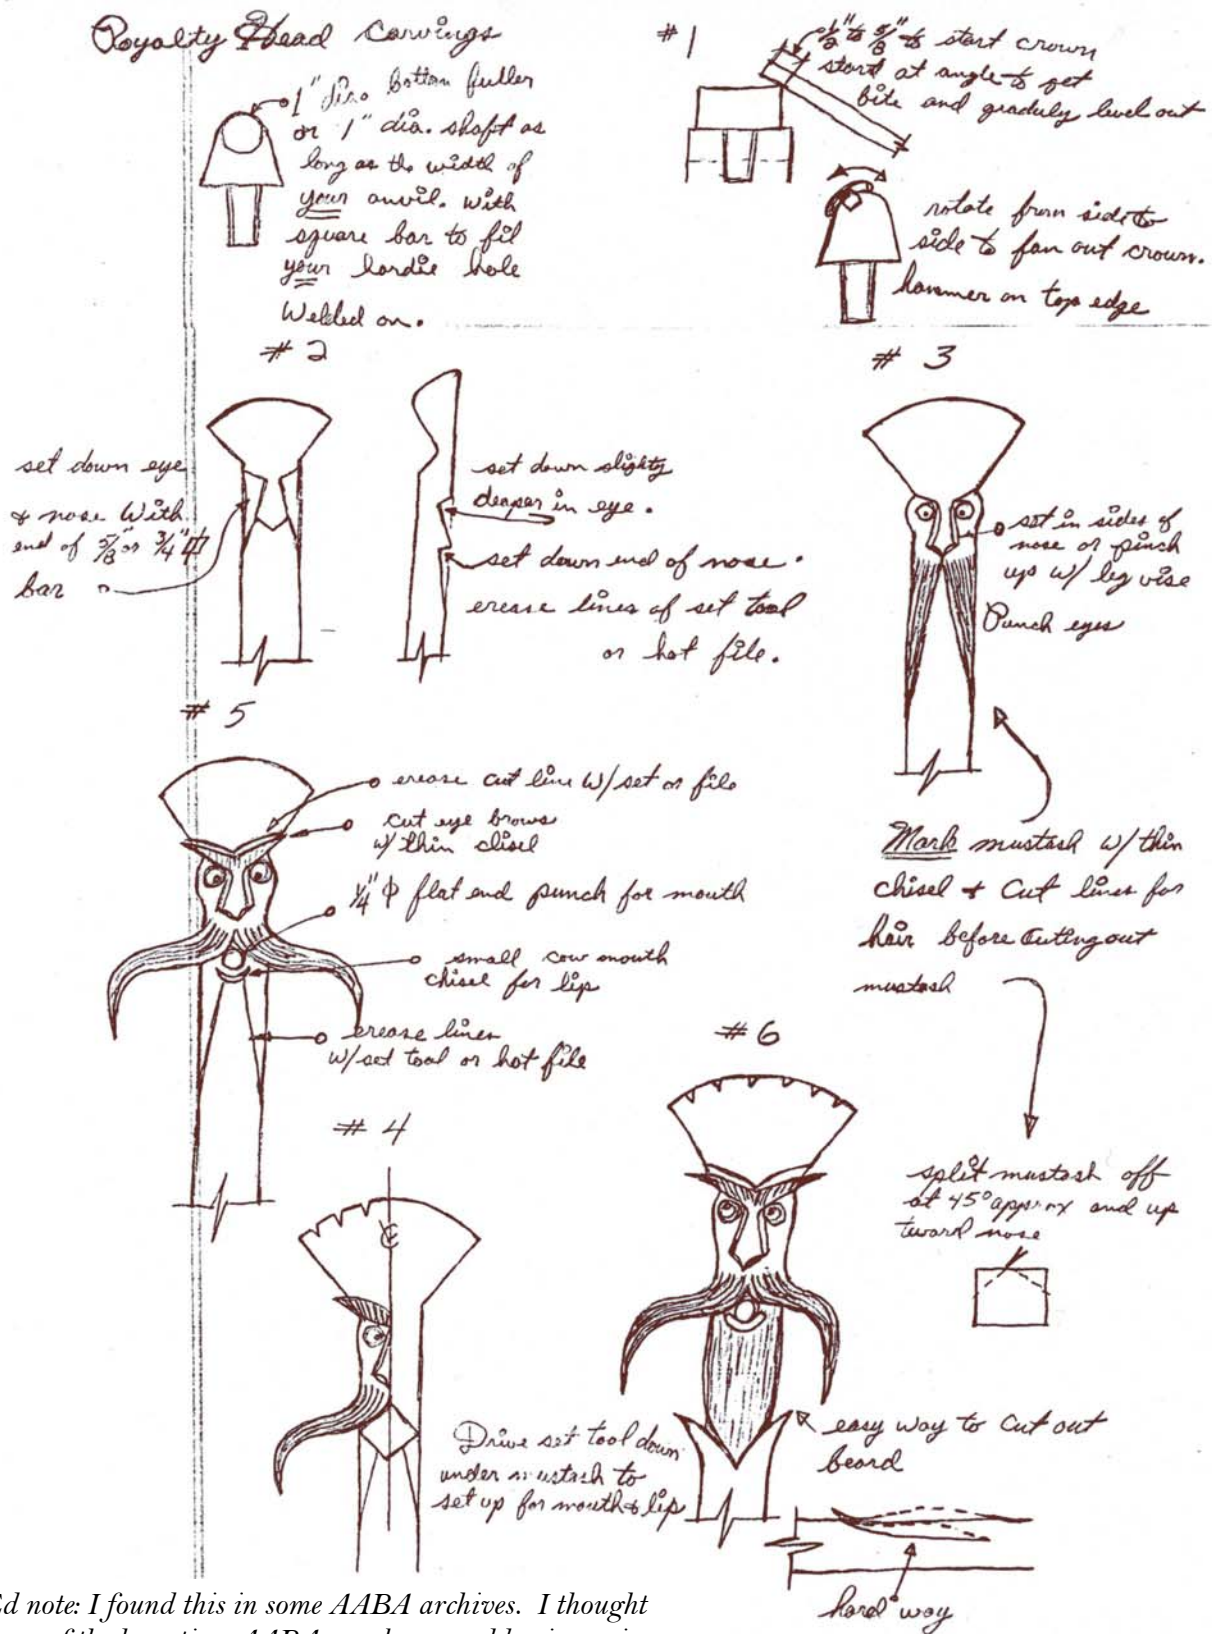 Royalty Head Carvings
1" dia. bottom fuller
or 1" dia. shaft as
long as the width of
your anvil. With
square bar to fil
your hardie hole
Welded on.
#1
1/2" to 5/8" to start crown
start at angle to get
bite and graduly level out
rotate from side to
side to fan out crown.
hammer on top edge
#2
set down eye
& nose With
end of 5/8" or 3/4"
bar
set down slighty
deaper in eye.
set down end of nose.
crease lines of set tool
or hot file.
#3
set in sides of
nose or pinch
up w/ leg vise
Punch eyes
Mark mustash w/ thin
chisel & Cut lines for
hair before Cuting out
mustash
split mustash off
at 45° approx and up
toward nose
#5
crease cut line w/ set or file
cut eye brows
w/ thin chisel
1/4" φ flat end punch for mouth
small cow mouth
chisel for lip
crease lines
w/ set tool or hot file
#4
Drive set tool down
under mustash to
set up for mouth & lip
#6
easy way to Cut out
beard
hard way
d note: I found this in some AABA archives. I thought